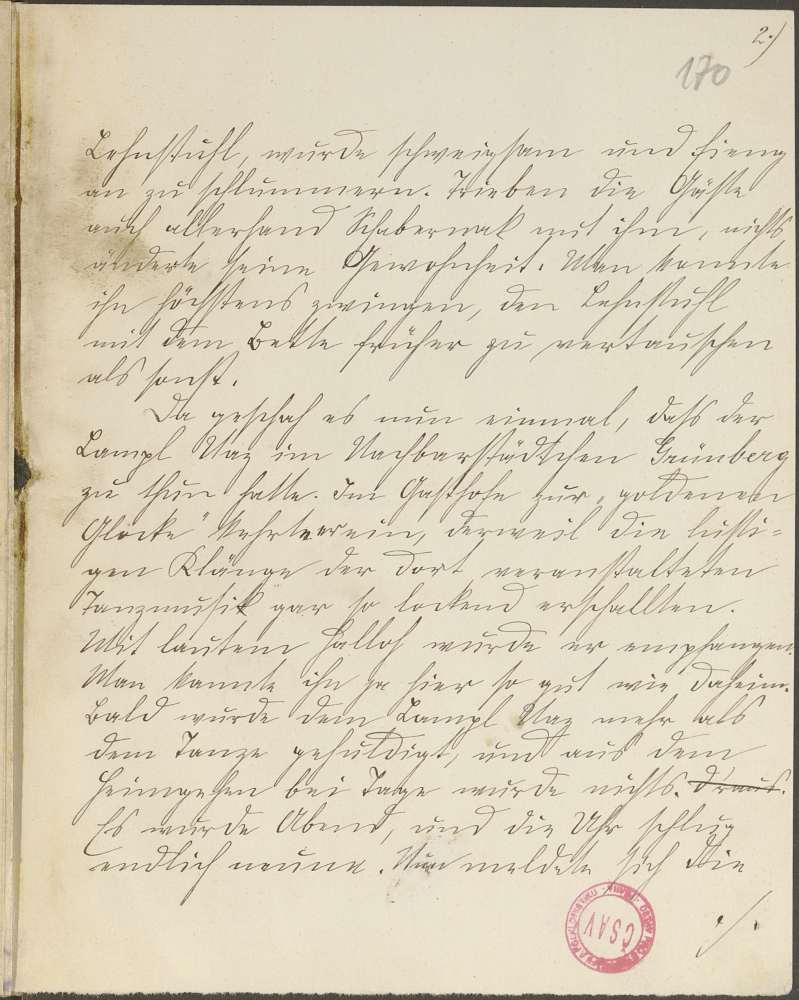 2.)
170
Lehnstuhl, wurde schweigsam und fieng
an zu schlummern. Trieben die Gäste
auch allerhand Schabernak mit ihm, nichts
änderte seine Gewohnheit. Man konnte
ihn höchstens zwingen, den Lehnstuhl
mit dem Bette früher zu vertauschen
als sonst.
Da geschah es nun einmal, dass der
Lampl Naz im Nachbarstädtchen Grünberg
zu thun hatte. Im Gasthofe zur "goldenen
Glocke" kehrte er ein, derweil die lusti=
gen Klänge der dort veranstalteten
Tanzmusik gar so lockend erschallten.
Mit lautem Halloh wurde er empfangen.
Man kannte ihn ja hier so gut wie daheim.
Bald wurde dem Lampl Naz mehr als
dem Tanze gehuldigt, und aus dem
Heimgehen bei Tage wurde nichts. draus.
Es wurde Abend, und die Uhr schlug
endlich neune. Nun meldete sich die
./.
ČSAV